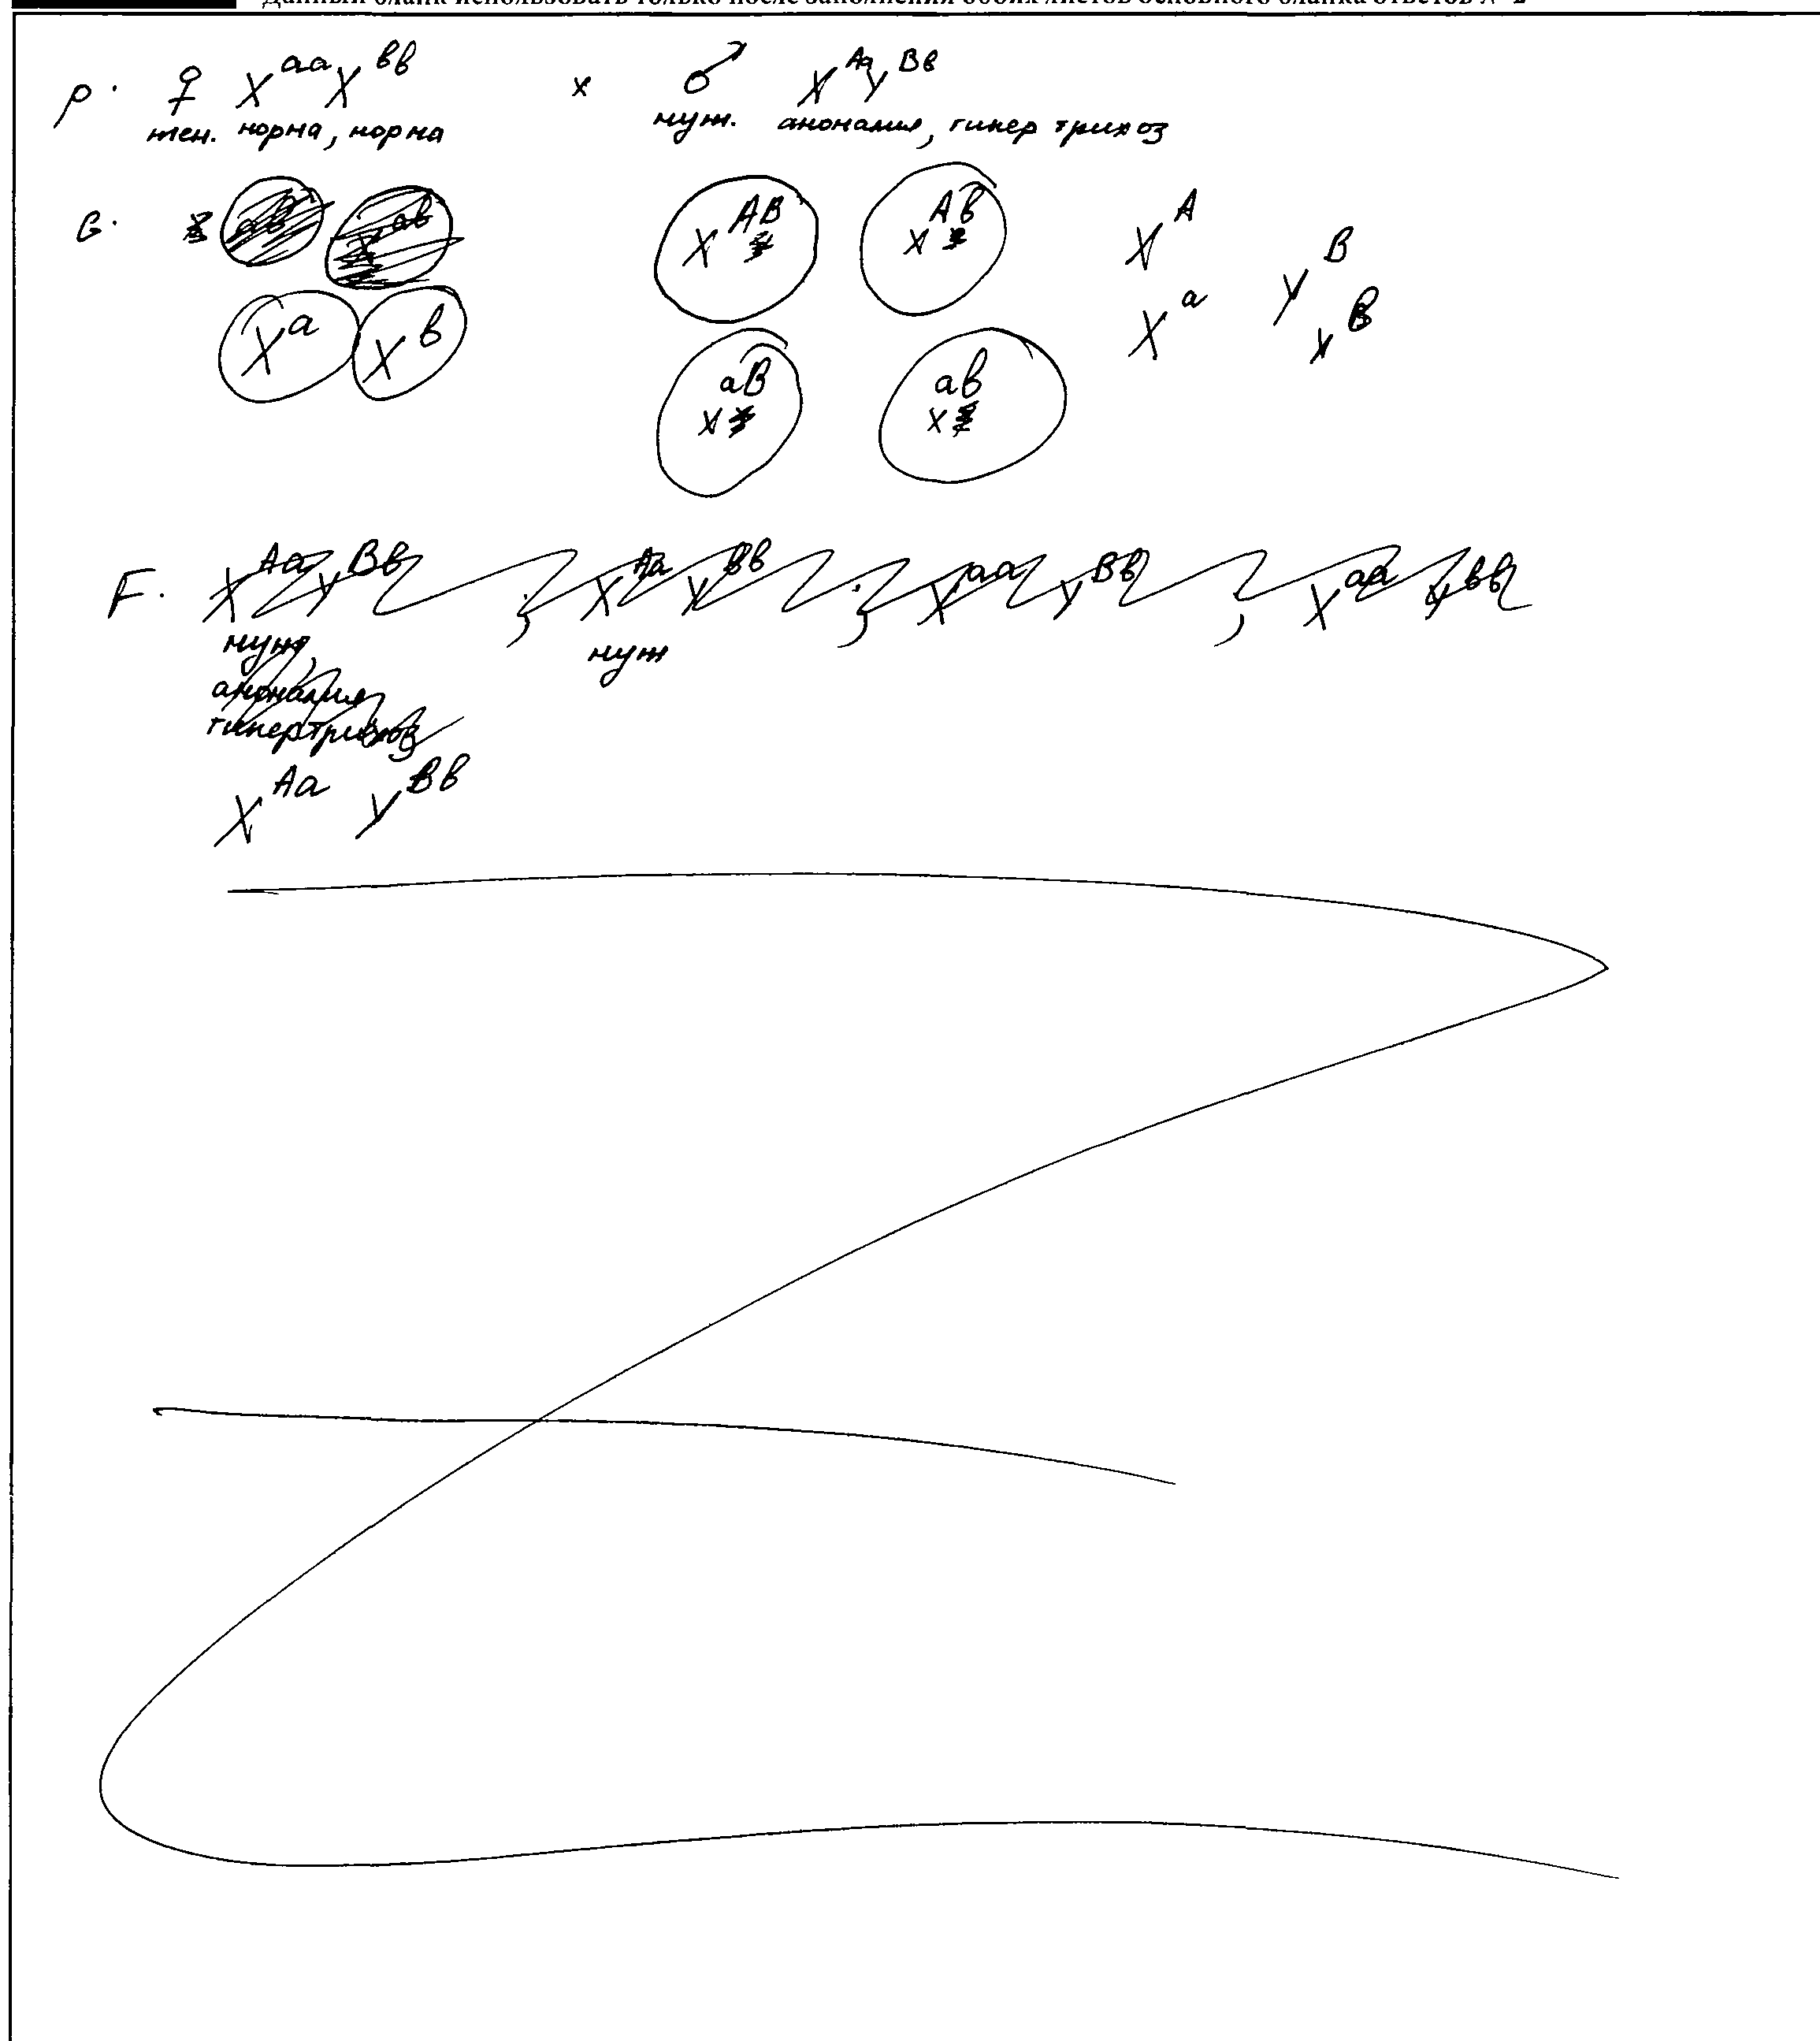 Данный бланк использовать только после заполнения обоих листов основного бланка ответов № 2
P. ♀ X^aa X^вв x ♂ X^Aa Y^Вв
жен. норма, норма муж. аномалия, гипертрихоз
G. X^AB X^Aв X^A
X^a X^в X^aB X^aв X^a Y^B X^B
F. X^Aa Y^Вв ; X^Aa Y^вв ; X^aa Y^Вв , X^aa Y^вв
муж, муж
аномалия
гипертрихоз
X^Aa Y^Вв